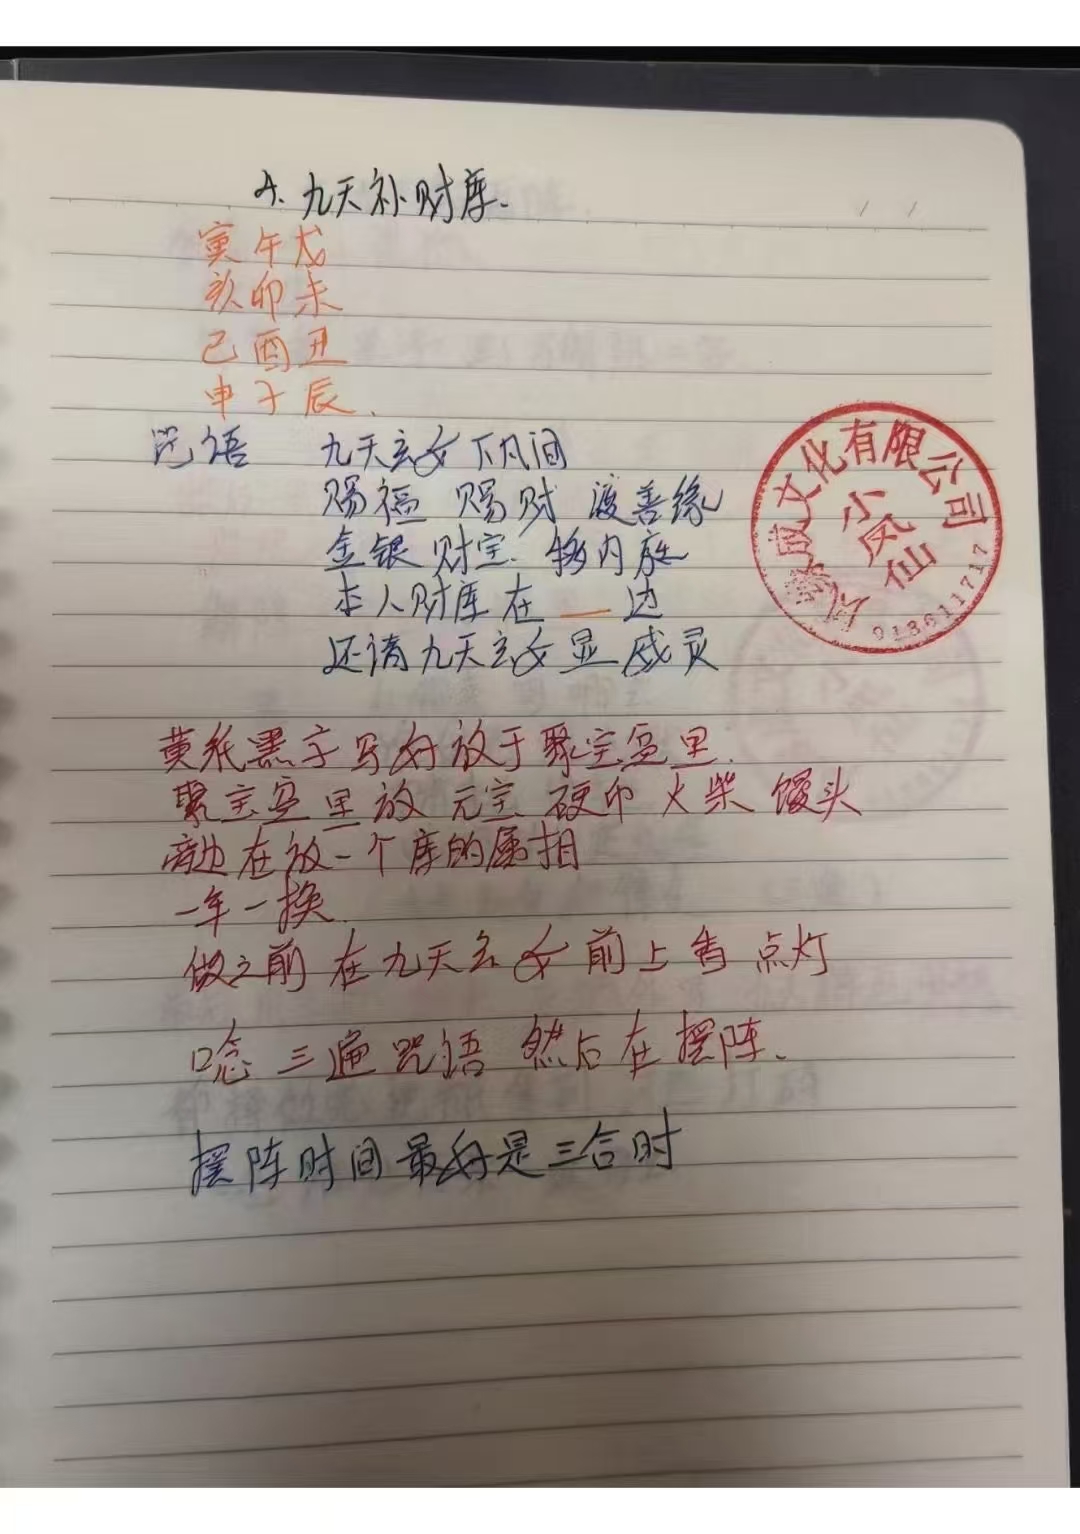 4. 九天补财库.
寅午戌
亥卯未
己酉丑
申子辰.
咒语 九天玄女下凡间
赐福 赐财 渡善缘
金银财宝 内
本人财库在 __ 边
还请九天玄女显威灵
黄纸黑字写好放于聚宝盆里.
聚宝盆里放 元宝 硬币 火柴 馒头
旁边在放一个库的属相
一年一换.
做之前在九天玄女前上香 点灯
唸三遍咒语 然后在摆阵.
摆阵时间最好是三合时
威文化有限公司
小凤仙
018611717